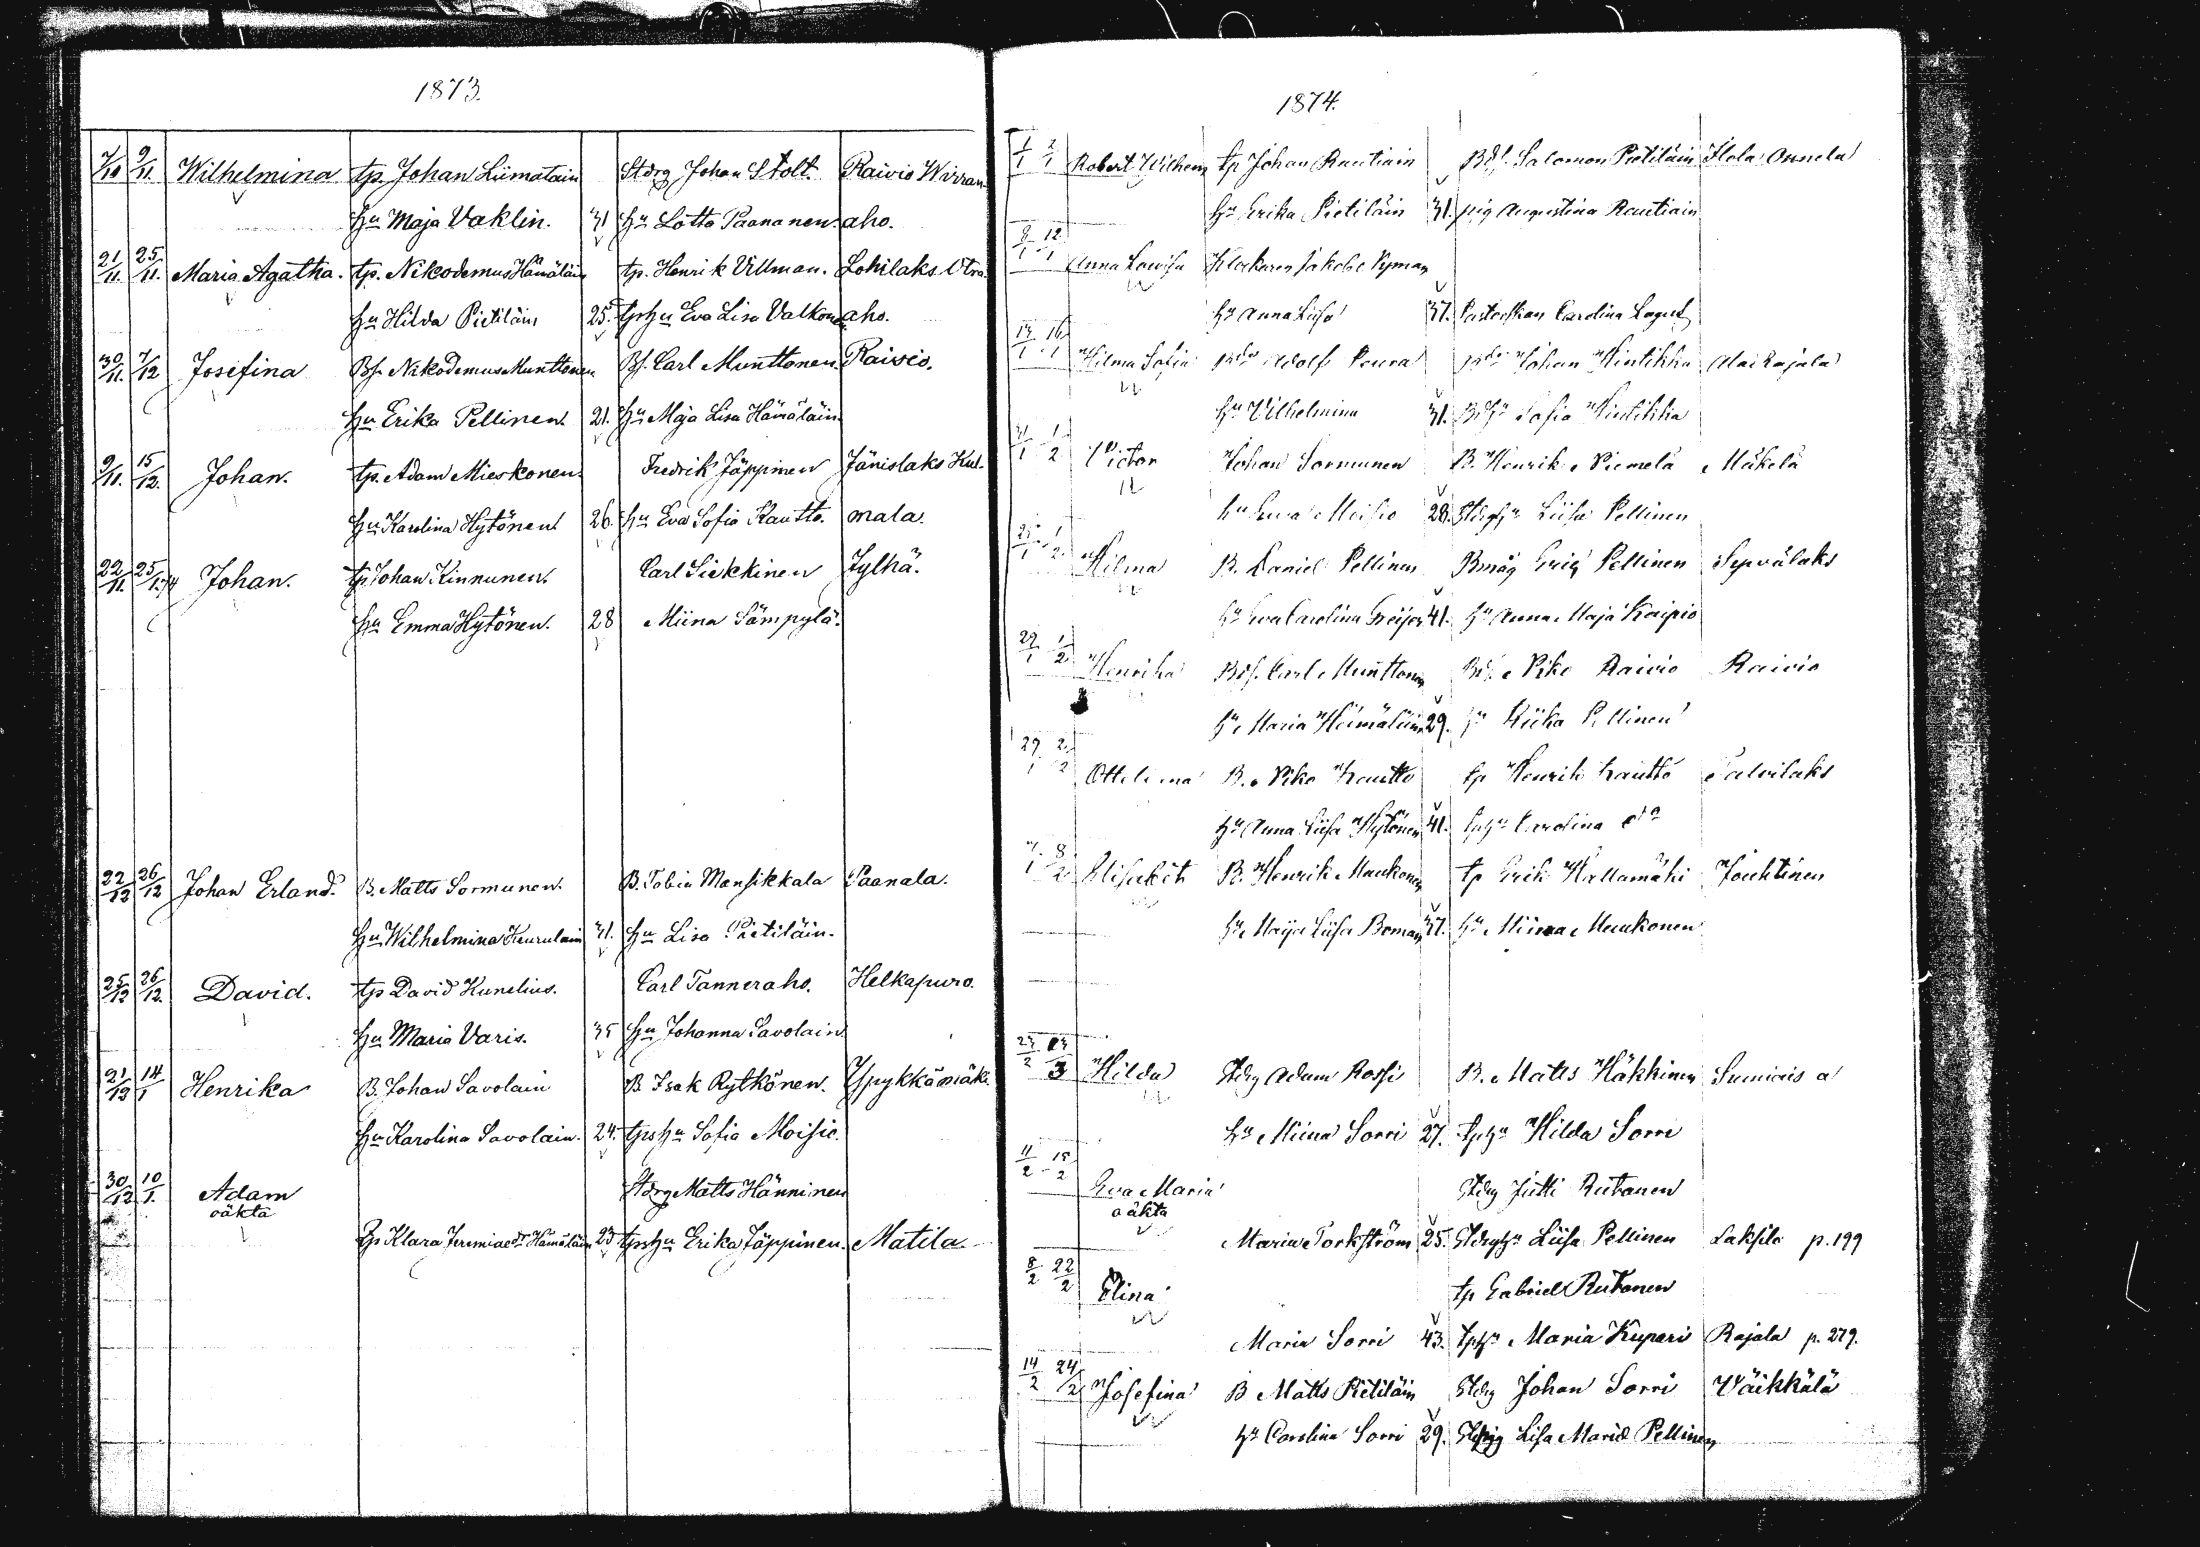 1873.
7/10 9/11. Wilhelmina tp. Johan Liimatain Stdrg Johan Stolt. Raivio Wirran
hu Maja Vaklin. 31 hu Lotta Paananen. aho.
21/11. 25/11. Maria Agatha. tp. Nikodemus Hämäläin tp. Henrik Villman. Lohilaks Otra
hu Hilda Pietiläin 25. tpshu Eva Lisa Valkonen aho.
30/11. 7/12 Josefina Bf. Nikodemus Munttonen Bf. Carl Munttonen Raivio.
hu Erika Pellinen. 21. hu Maja Lisa Hämäläin.
9/11. 15/12. Johan. tp. Adam Mieskonen. Fredrik Jäppinen Jänislaks Kul-
hu Karolina Hytönen 26. hu Eva Sofia Kautto. mala.
22/11. 25/1.74 Johan. tp Johan Kinnunen. Carl Siekkinen Jylhä.
hu Emma Hytönen. 28 Miina Sämpylä.
22/12 26/12 Johan Erland. B. Matts Sormunen. B. Tobias Mansikkala Paanala.
hu Wilhelmina Kaurulain 31. hu Lisa Pietiläin.
25/12 26/12. David. tp David Kunelius. Carl Tanneraho. Helkapuro.
hu Maria Varis. 35 hu Johanna Savolain
21/12 14/1 Henrika B. Johan Savolain B Isak Rytkönen. Ypykkämäk.
hu Karolina Savolain. 24. tpshu Sofia Moisio.
30/12 10/1. Adam Stdrg Matts Hänninen
oäkta
Tp Klara Jeremiaedr Hämäläin 23 tpshu Erika Jäppinen. Matila.
1874.
1/1 Robert Wilhem tp Johan Rautiain Bdf. Salomon Pietiläin Hola Onnela
hu Erika Pietiläin 31. pig Augustina Rautiain
8/1 12/1 Anna Lowisa Klockaren Jakob Nyman
hu Anna Lisa 37. Pastorskan Carolina Lagus
13/1 16/1 Hilma Sofia Adolf Peura Johan Hintikka Alaikajala
hu Vilhelmina 31. Sofia Hintikka
31/1 1/2 Victor Johan Sormunen B. Henrik Niemelä Mäkelä
hu Ewa Moisio 28. Stdrghu Liisa Pellinen
1/2 Hilma B. Daniel Pellinen Bmåg Eric Pellinen Sepvälaks
hu Eva Carolina 41. hu Anna Maja Kaipio
29/1 1/2 Henrika Bdf. Carl Munttonen Niko Raivio Raivio
hu Maria Hämäläin 29. hu Riika Pellinen
29/1 2/2 Ottiliana B. Niko Kautto tp Henrik Kautto Talvilaks
hu Anna Liisa Hytönen 41. tphu Carolina do
8/2 Elisabeth B. Henrik Maukonen tp Erik Hallamäki Jouhtinen
hu Maija Liisa Boman 37. hu Miina Maukonen
3 Hilda Stdrg Adam Rossi B. Matts Häkkinen Sumiais a
hu Miina Sorri 27. tphu Hilda Sorri
11/2 15/2 Eva Maria Stdrg Jutti Rutanen
oäkta
Maria Torkström 25. Stdrghu Liisa Pellinen Laksila p. 199
8/2 22/2 Elina tp Gabriel Rutanen
Maria Sorri 43. tphu Maria Kupari Rajala p. 279.
14/2 24/2 Josefina B Matts Pietiläin Stdrg Johan Sorri Wäikkälä
hu Carolina Sorri 29. Lisa Maria Pellinen